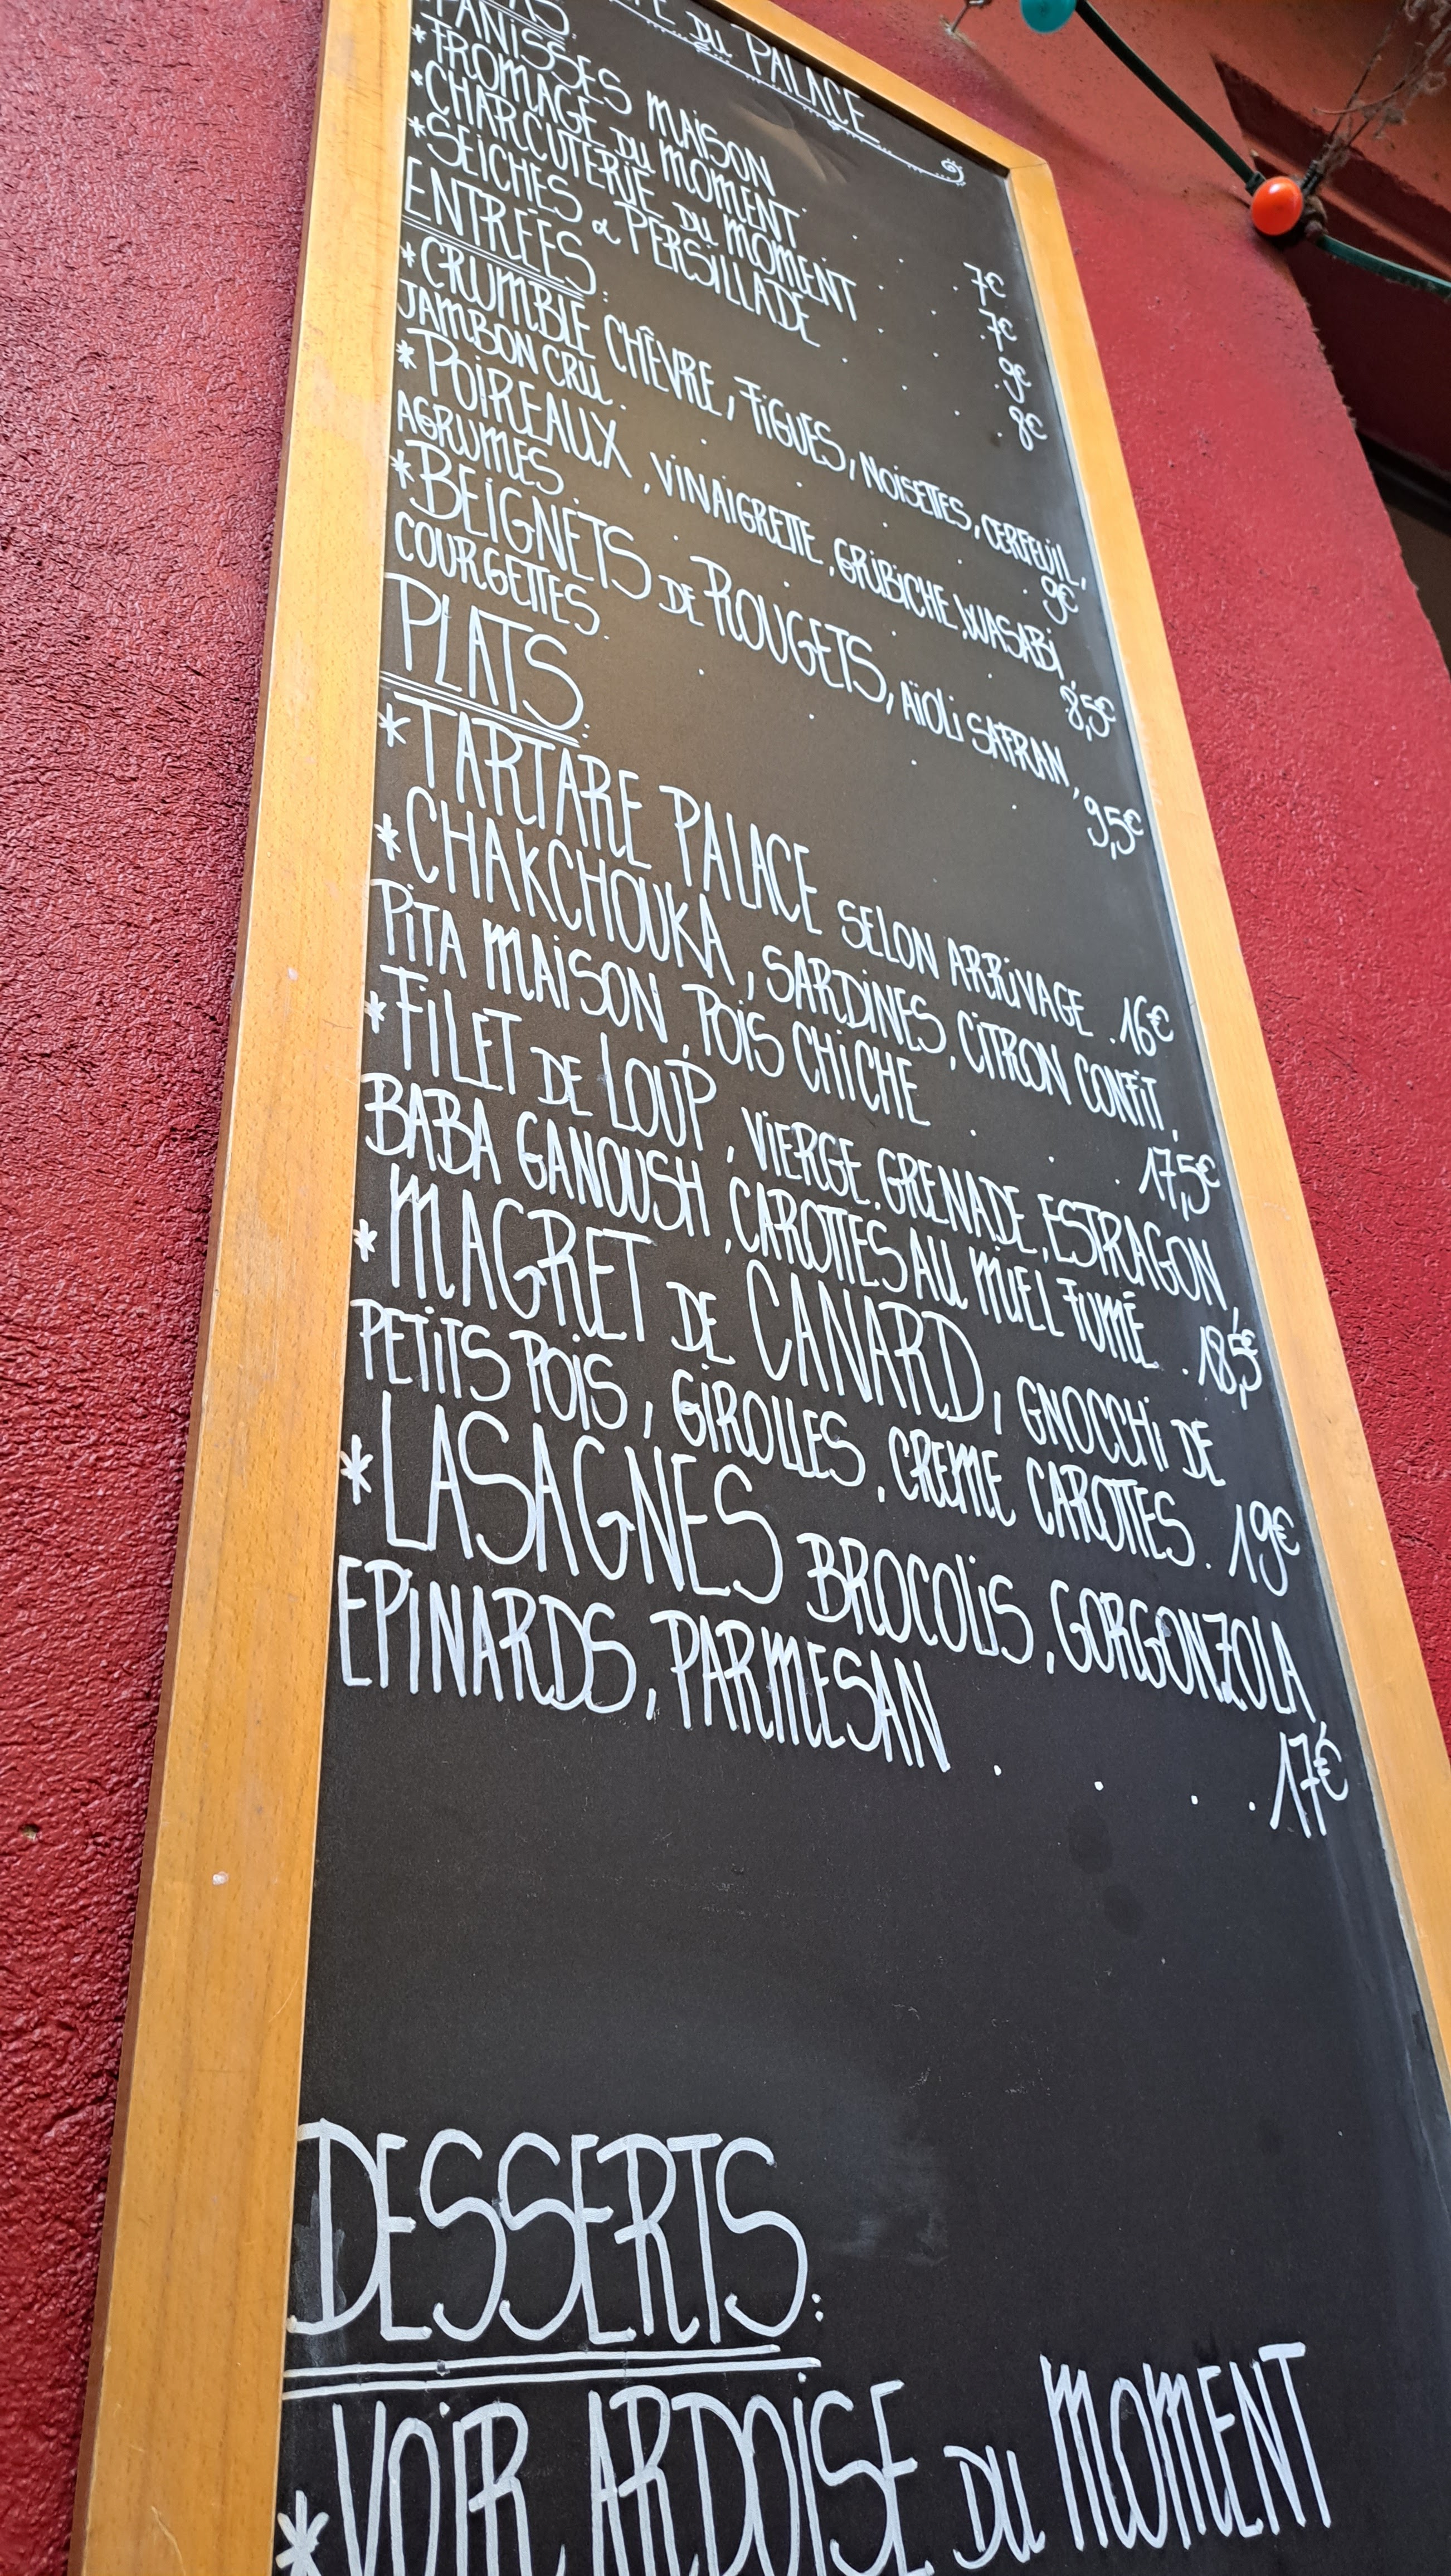 DU PALACE
PANISSES MAISON 7€
*FROMAGE DU MOMENT 7€
*CHARCUTERIE DU MOMENT 9€
*SEICHES à PERSILLADE 8€
ENTRÉES:
*CRUMBLE CHÊVRE, FIGUES, NOISETTES, CERFEUIL,
JAMBON CRU. 9€
*POIREAUX, VINAIGRETTE, GRIBICHE, WASABI,
AGRUMES. 8,5€
*BEIGNETS DE ROUGETS, AÏOLI SAFRAN,
COURGETTES. 9,5€
PLATS:
*TARTARE PALACE SELON ARRIVAGE. 16€
*CHAKCHOUKA, SARDINES, CITRON CONFIT,
PITA MAISON, POIS CHICHE . . . 17,5€
*FILET DE LOUP, VIERGE GRENADE, ESTRAGON,
BABA GANOUSH, CAROTTES AU MIEL FUMÉ. 18,5€
*MAGRET DE CANARD, GNOCCHI DE
PETITS POIS, GIROLLES, CREME CAROTTES. 19€
*LASAGNES BROCOLIS, GORGONZOLA,
EPINARDS, PARMESAN . . . . 17€
DESSERTS:
*VOIR ARDOISE DU MOMENT